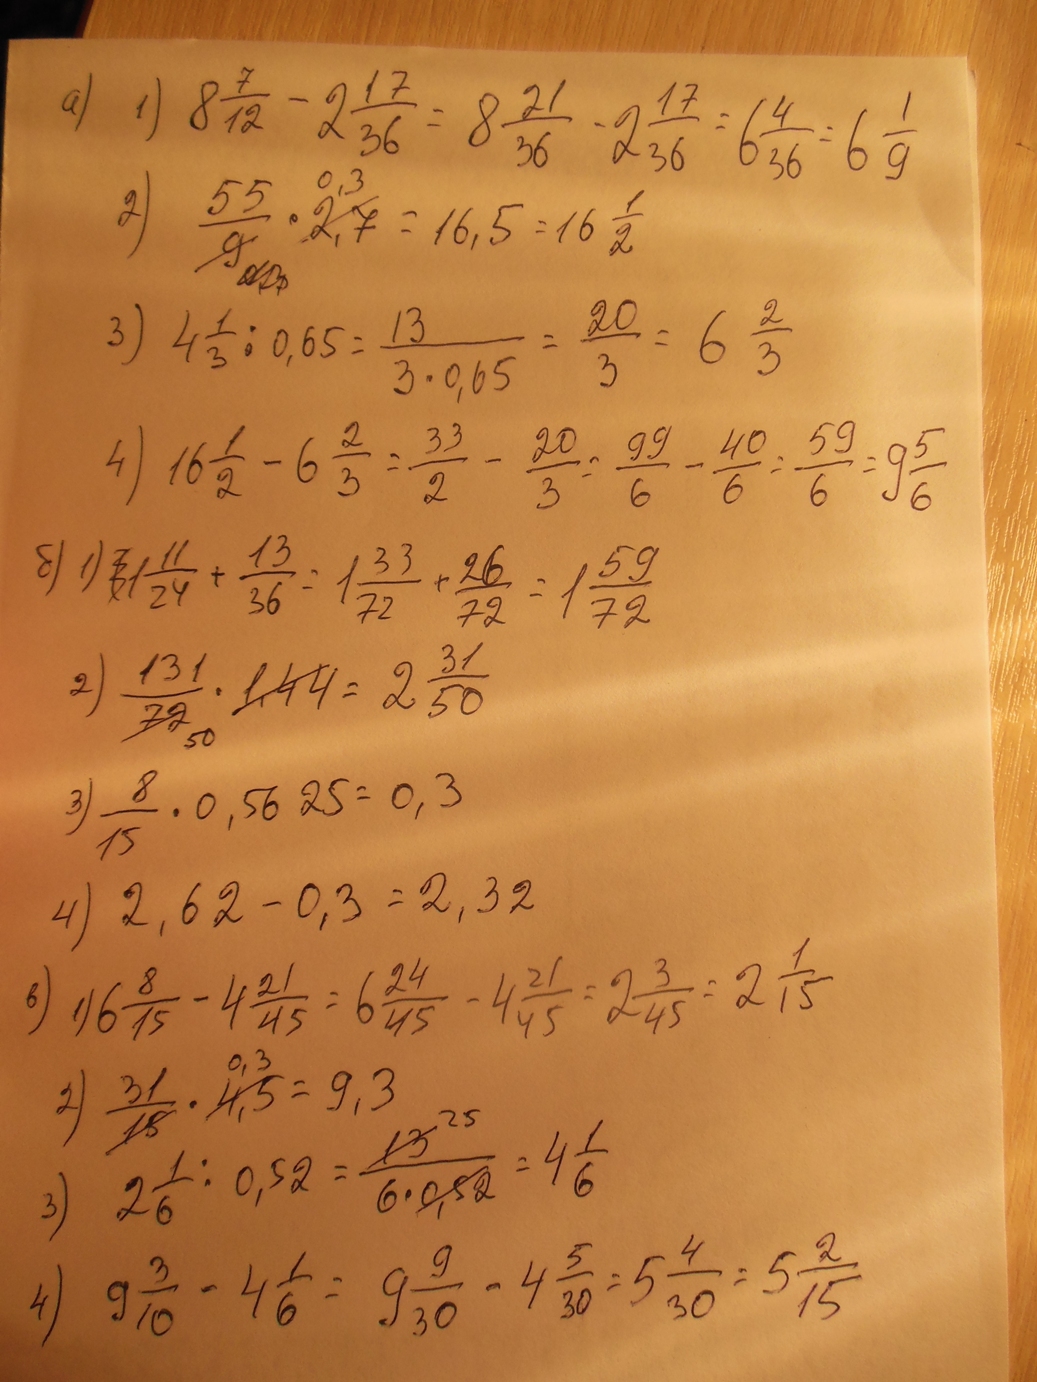 а) 1) 8 7/12 - 2 17/36 = 8 21/36 - 2 17/36 = 6 4/36 = 6 1/9
2) 55/9 · 2,7 0,3 = 16,5 = 16 1/2
3) 4 1/3 : 0,65 = 13/(3·0,65) = 20/3 = 6 2/3
4) 16 1/2 - 6 2/3 = 33/2 - 20/3 = 99/6 - 40/6 = 59/6 = 9 5/6
б) 1) 1 11/24 + 13/36 = 1 33/72 + 26/72 = 1 59/72
2) 131/72 50 · 1,44 = 2 31/50
3) 8/15 · 0,5625 = 0,3
4) 2,62 - 0,3 = 2,32
в) 1) 6 8/15 - 4 21/45 = 6 24/45 - 4 21/45 = 2 3/45 = 2 1/15
2) 31/15 · 4,5 0,3 = 9,3
3) 2 1/6 : 0,52 = 13 25/(6·0,52) = 4 1/6
4) 9 3/10 - 4 1/6 = 9 9/30 - 4 5/30 = 5 4/30 = 5 2/15